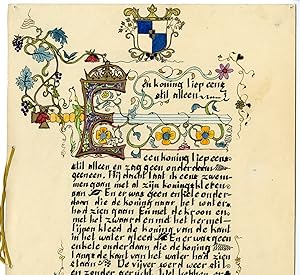 Een koning liep eens
stil alleen
Een koning liep eens
stil alleen en zag geen onderdaan
geneen. Hij dacht laat ik eens zwem-
men gaan met al zijn koningskleren
aan. En er was geen enkele onder-
daan die de koning naar het water
had zien gaan en met de kroon en
met het zwaard en met het herme-
lijnen kleed de koning van de kant
in het water gleed. En er was geen
enkele onderdaan die de koning
langs de kant van het water had zien
staan. De vijver werd weer stil
en zonder gerucht. Wel hebben